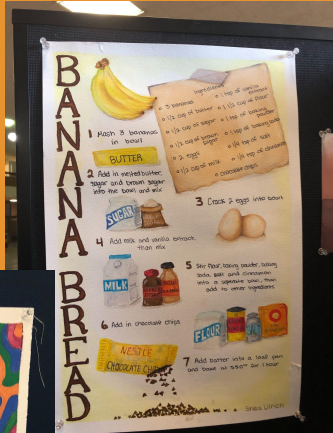 BANANA BREAD
Ingredients
3 bananas
1/2 cup of butter
1/2 cup of sugar
1/2 cup of brown sugar
2 eggs
1/2 cup of milk
1 tsp of vanilla extract
1 1/2 cup of flour
1 tsp of baking powder
1 tsp of baking soda
1/4 tsp of salt
1/4 tsp of cinnamon
chocolate chips
1 Mash 3 bananas
in bowl
BUTTER
2 Add in melted butter,
sugar and brown sugar
into the bowl and mix
SUGAR
3 Crack 2 eggs into bowl
4 Add milk and vanilla extract,
than mix
MILK
5 Stir flour, baking powder, baking
soda, salt and cinnamon
into a seperate bowl, then
add to other ingredients
FLOUR
6 Add in chocolate chips
NESTLE
CHOCOLATE CHIPS
7 Add batter into a loaf pan
and bake at 350° for 1 hour
Shea Ulrich